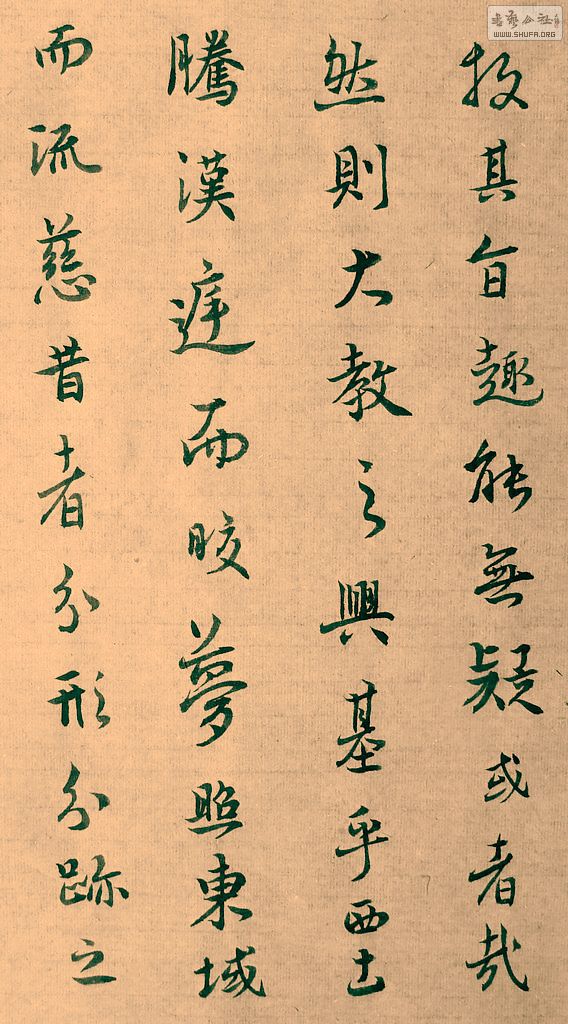 投其旨趣能無疑或者哉
然則大教之興基乎西土
騰漢庭而晈夢照東域
而流慈昔者分形分跡之
書藝公社
WWW.SHUFA.ORG